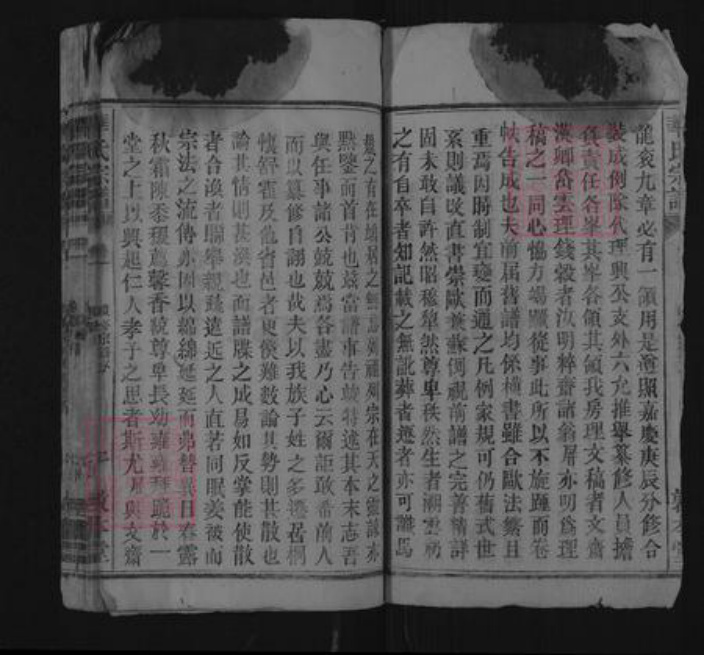 龍袞九章必有一領用是遵照嘉慶庚辰分修合
裝成例除代理興公支外六允推舉纂修人員擔
負責任各舉其峯各領其領我房理文稿者文齋
漢卿岱雲理錢穀者汝明粹齋諸翁屏亦明為理
稿之一同心協力場躍從事此所以不旋踵而卷
帙告成也夫前届舊譜均係橫書雖合歐法繁且
重焉因時制宜變而通之凡例家規可仍舊式世
系則議改直書崇歐兼蘇倒視前譜之完善精詳
固未敢自許然昭穆犂然尊卑秩然生者
之有自卒者知記載之無訛葬者遷者亦可識馬
祖宗在天之靈諒亦
默鑒而首肯也茲當譜事告竣特述其本末志吾
與任事諸公兢兢焉各盡乃心云爾詎敢希前人
而以纂修自詡也哉夫以我族子姓之多遷居
及他省邑者更僕難數論其勢則甚散也
論其情則甚渙也而譜牒之成易如反掌能使散
者合渙者聯舉親疏遠近之人直若同眠姜被而
宗法之流傳亦因以綿綿延延而弗替異日春露
秋霜陳黍稷薦馨香統尊卑長幼雍雍拜跪於一
堂之上以興起仁人孝子之思者斯尤屏與文齋